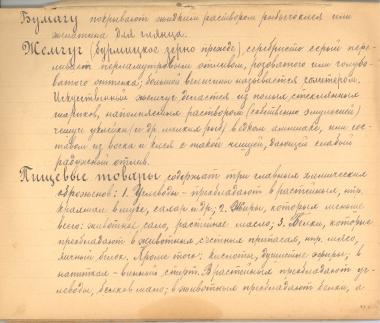 Бумагу покрывают жидким раствором рыбьего клея или
желатина для глянца.
Жемчуг (бурмицкое зерно прежде), серебристо серый пере-
ливает перламутровым отливом, розоватого или голубо-
ватого оттенка, большой величины называется солитером.
Искуственный жемчуг делается из полых стеклянных
шариков, наполняемых раствором (собственно эмульсией)
чешуи уклейки (и др. мелких рыб) в едком аммиаке, или сос-
тавом из воска и клея с такой чешуей, дающей слабый
радужный отлив.
Пищевые товары содержат три главных химических
1. Углеводы - преобладают в растениях, нпр.
крахмал в муке, сахар и др.; 2. Жиры, которых меньше
всего: животное сало, растительное масло; 3. Белки, которые
преобладают в животных съестных припасах, нпр. мясо,
яичный белок. Кроме того: кислоты, душистые эфиры, в
напитках - винный спирт. В растениях преобладают уг-
леводы, белков мало; в животных преобладают белки, а